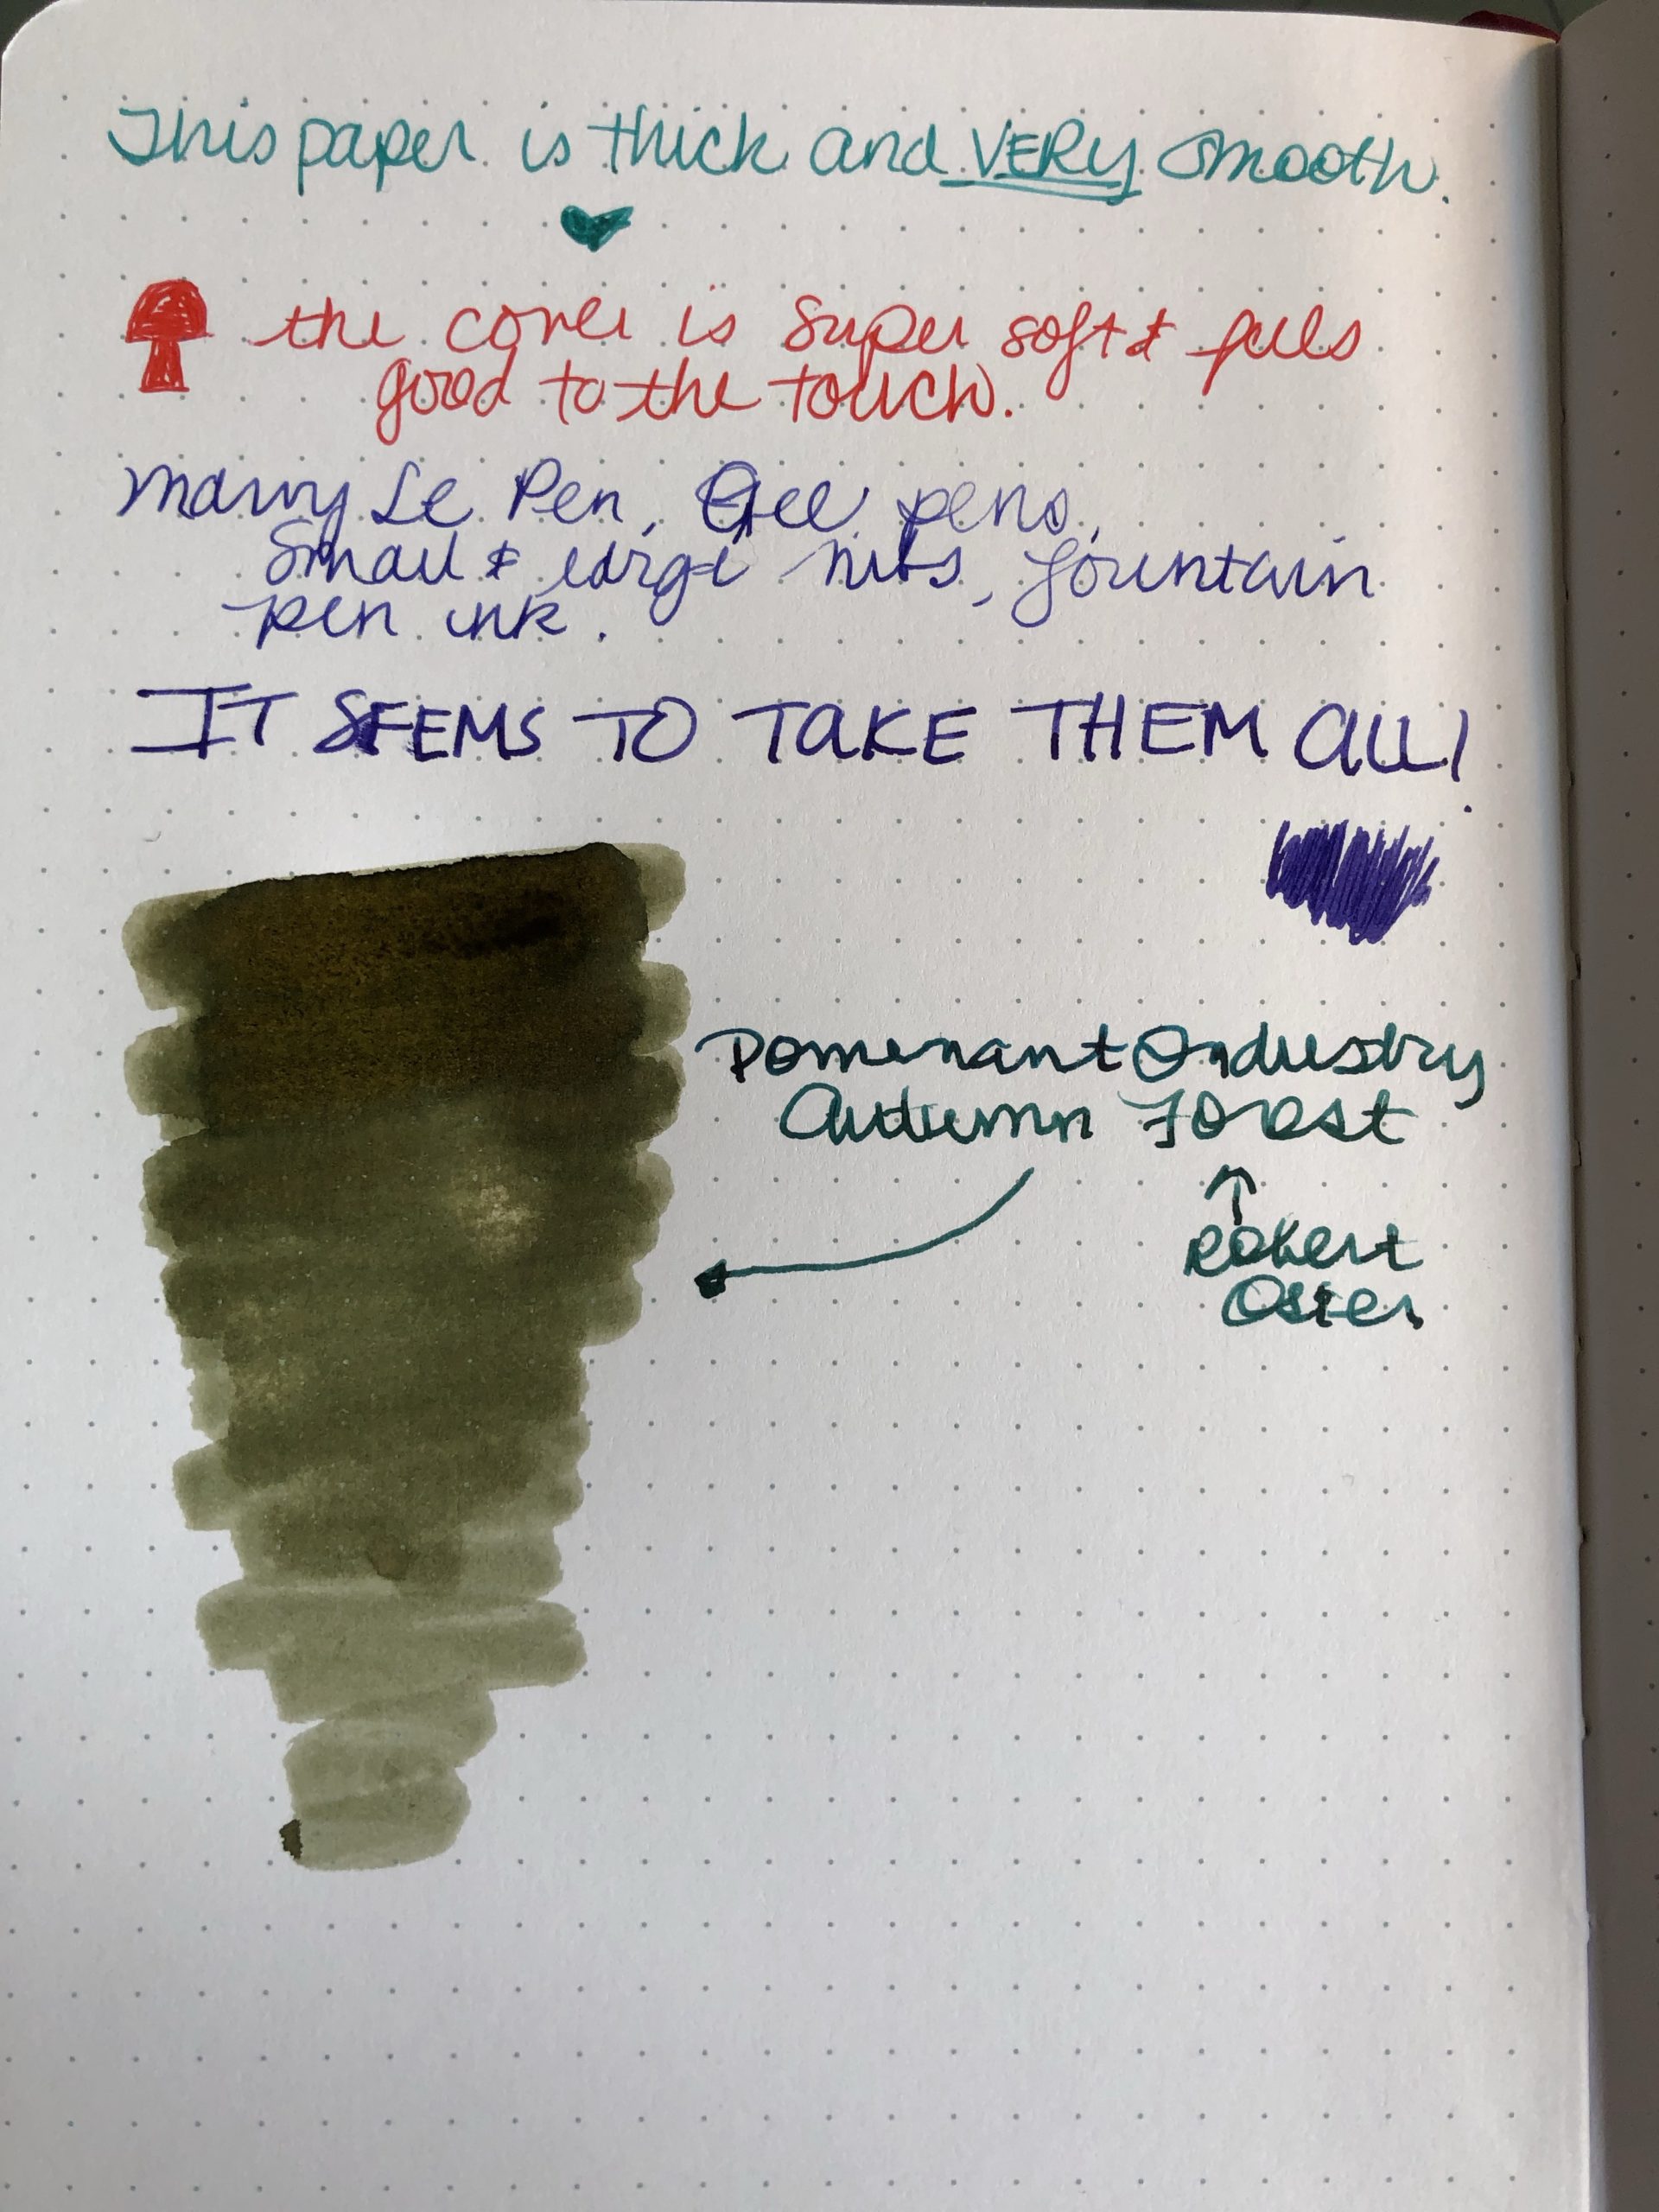 This paper is thick and VERY smooth.
the cover is super soft & feels
good to the touch.
Marvy Le Pen, Gel pens,
Small & large nibs, fountain
pen ink.
IT SEEMS TO TAKE THEM ALL!
Pomenant Industry
Autumn Forest
Robert
Oster